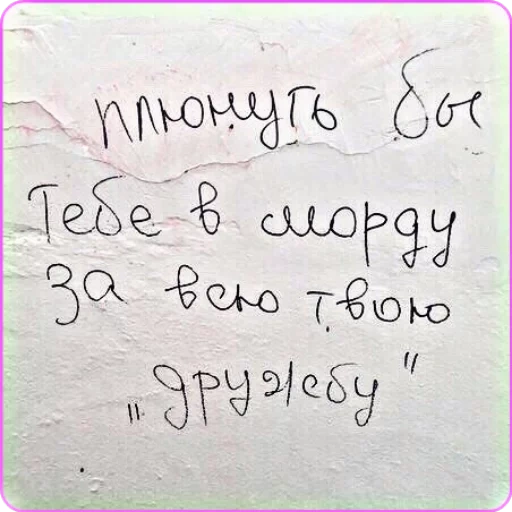 плюнуть бы
Тебе в морду
За всю твою
„дружбу"